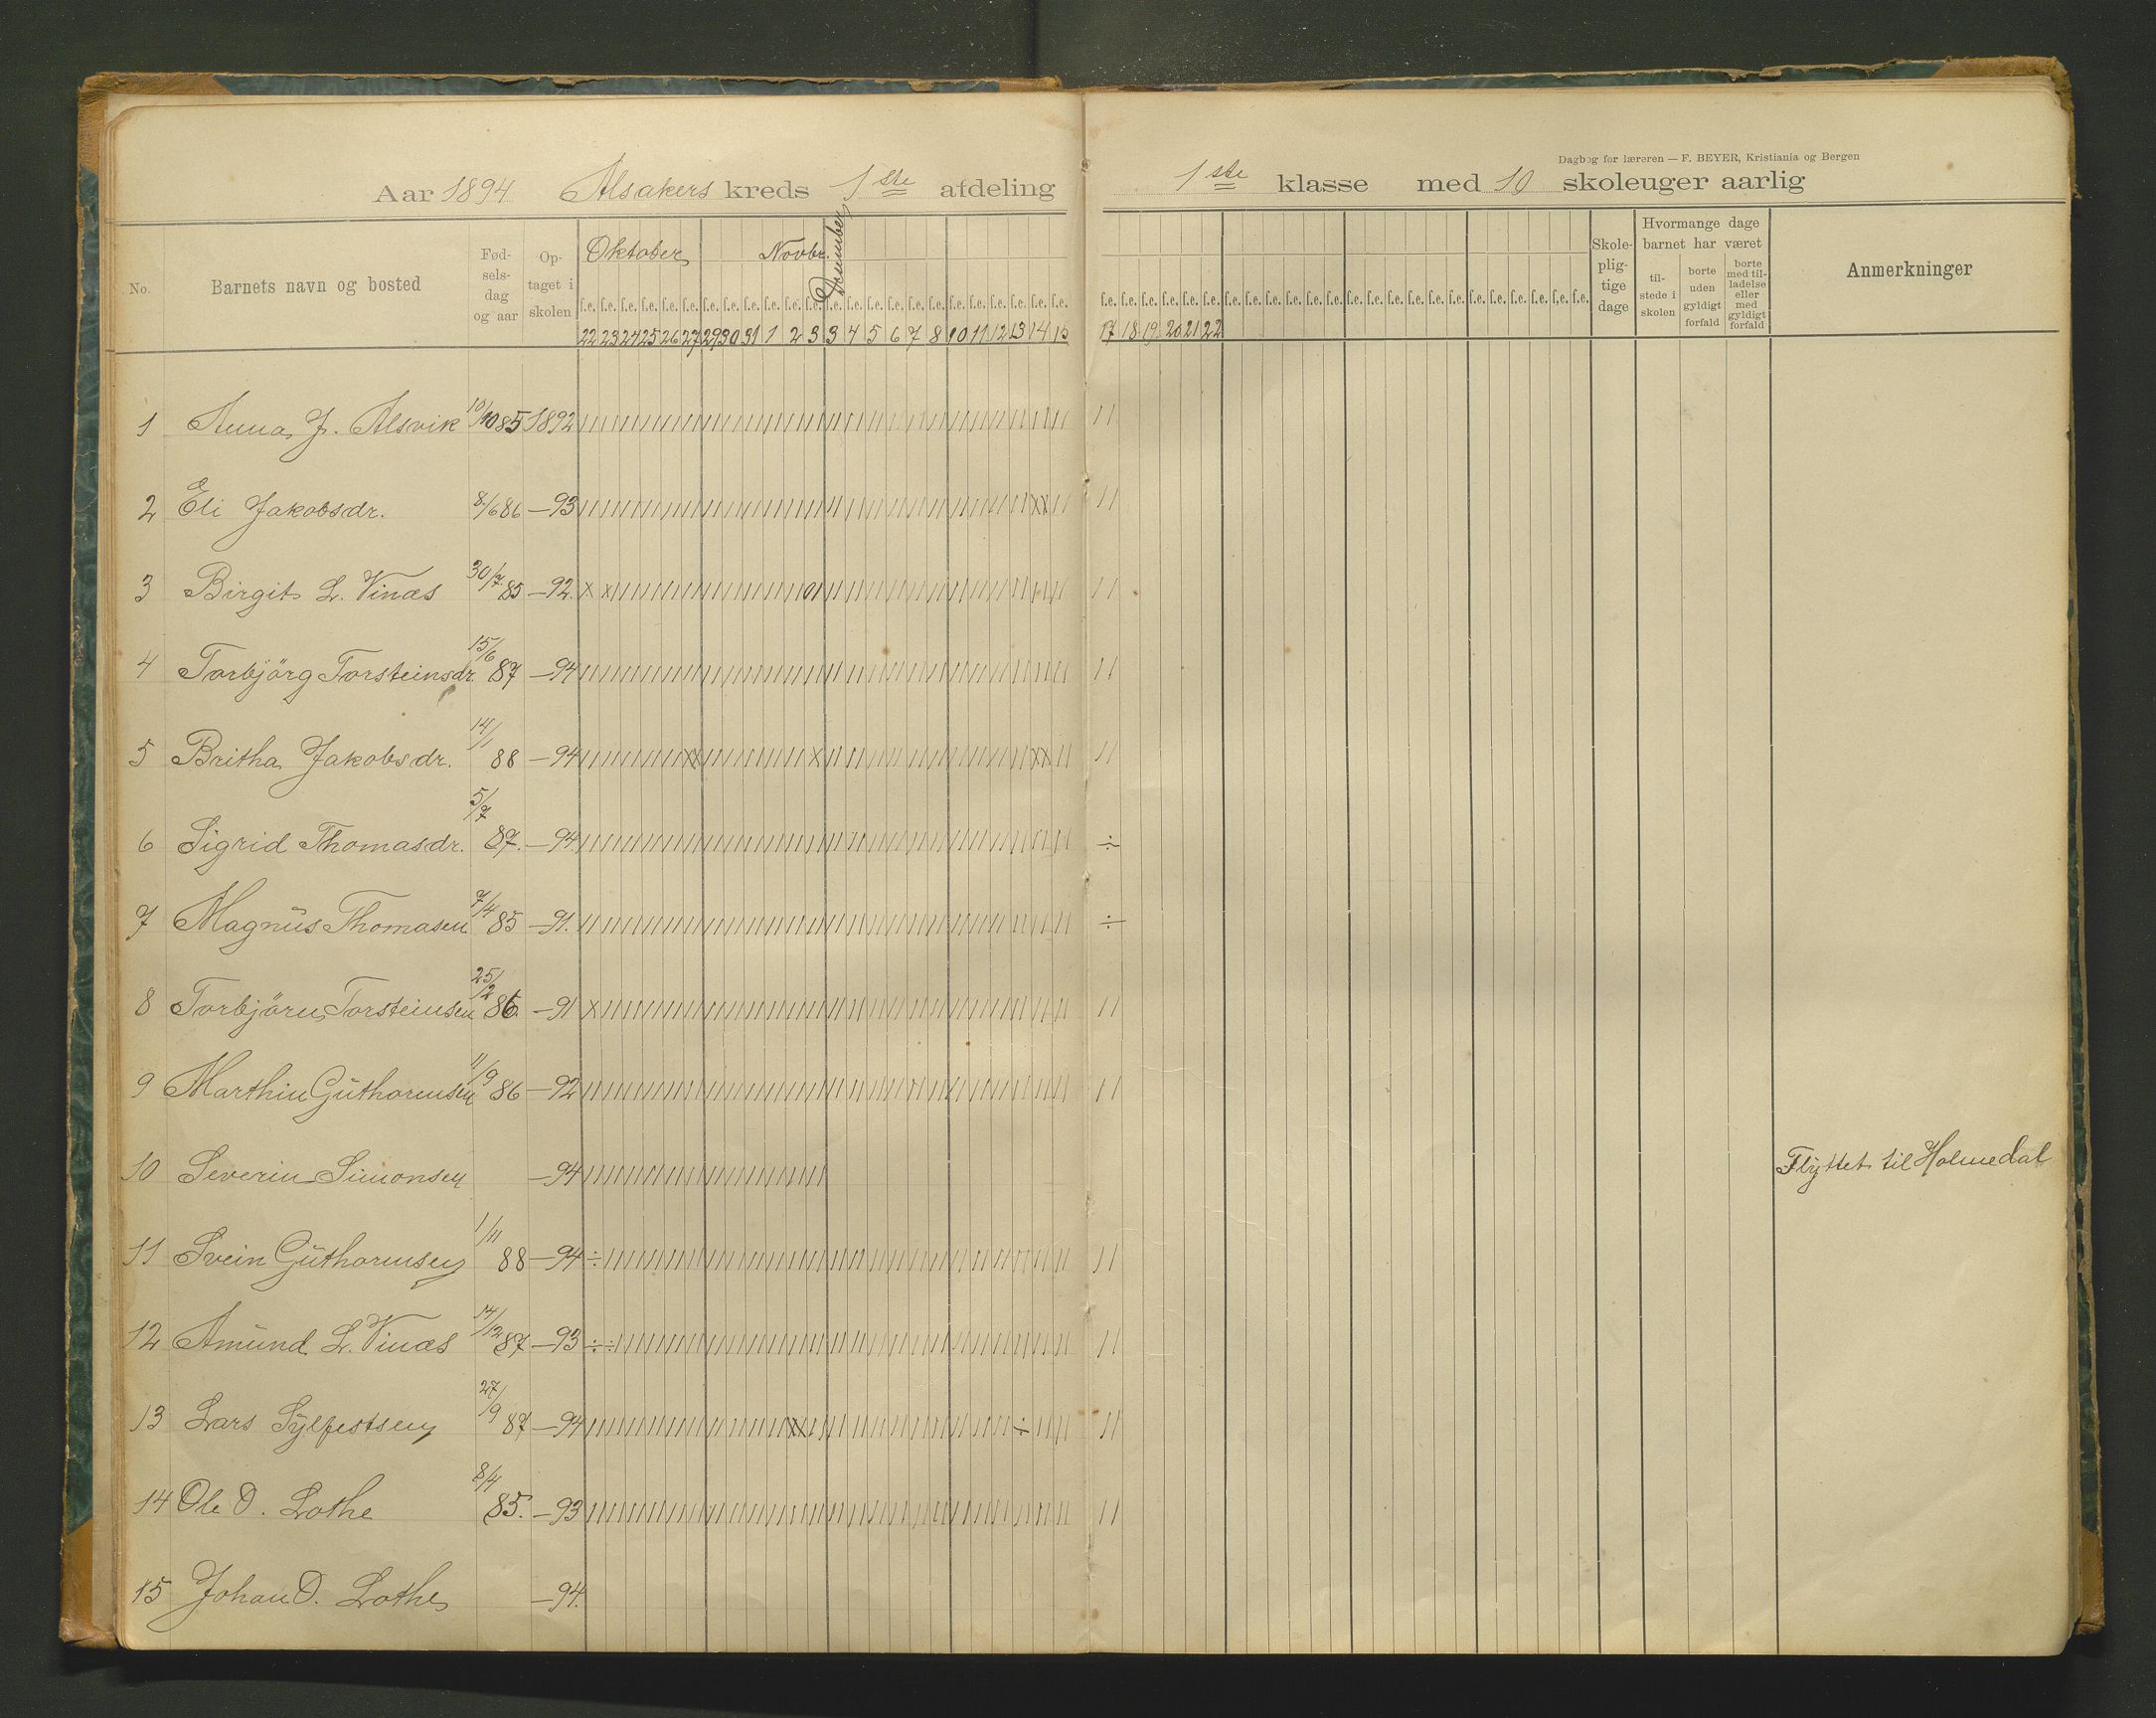 Dagbog for læreren — F. BEYER, Kristiania og Bergen
Aar 1894 Alsakers kreds 1ste afdeling 1ste klasse med 10 skoleuger aarlig
No. Barnets navn og bosted Fødselsdag og aar Optaget i skolen Oktober Novbr. December Skolepligtige dage Hvormange dage barnet har været tilstede i skolen borte uden gyldigt forfald borte med tilladelse eller med gyldigt forfald Anmerkninger
f.e. f.e. f.e. f.e. f.e. f.e. f.e. f.e. f.e. f.e. f.e. f.e. f.e. f.e. f.e. f.e. f.e. f.e. f.e. f.e. f.e. f.e. f.e. f.e. f.e. f.e. f.e. f.e. f.e. f.e. f.e. f.e. f.e. f.e. f.e. f.e. f.e. f.e. f.e. f.e. f.e. f.e. f.e. f.e. f.e. f.e. f.e. f.e.
22 23 24 25 26 27 29 30 31 1 2 3 3 4 5 6 7 8 10 11 12 13 14 15 17 18 19 20 21 22
1 Anna J. Alsvik 10/10 85 1892
2 Eli Jakobsdr. 8/6 86 —93
3 Birgit L. Vinæs 30/7 85 —92.
4 Torbjörg Torsteinsdr. 15/6 87 —94
5 Britha Jakobsdr. 14/1 88 —94
6 Sigrid Thomasdr. 5/7 87. —94
7 Magnus Thomasen 7/4 85 —91.
8 Torbjörn Torsteinsen 25/12 86. —91
9 Marthin Guthormsen 11/9 86 —92
10 Severin Simonsen —94 Flyttet til Holmedal
11 Svein Guthormsen 1/11 88 —94
12 Amund L. Vinæs 14/12 87 —93
13 Lars Sylfestsen 27/9 87 —94
14 Ole O. Lothe 8/4 85. —93
15 Johan O. Lothe —94.